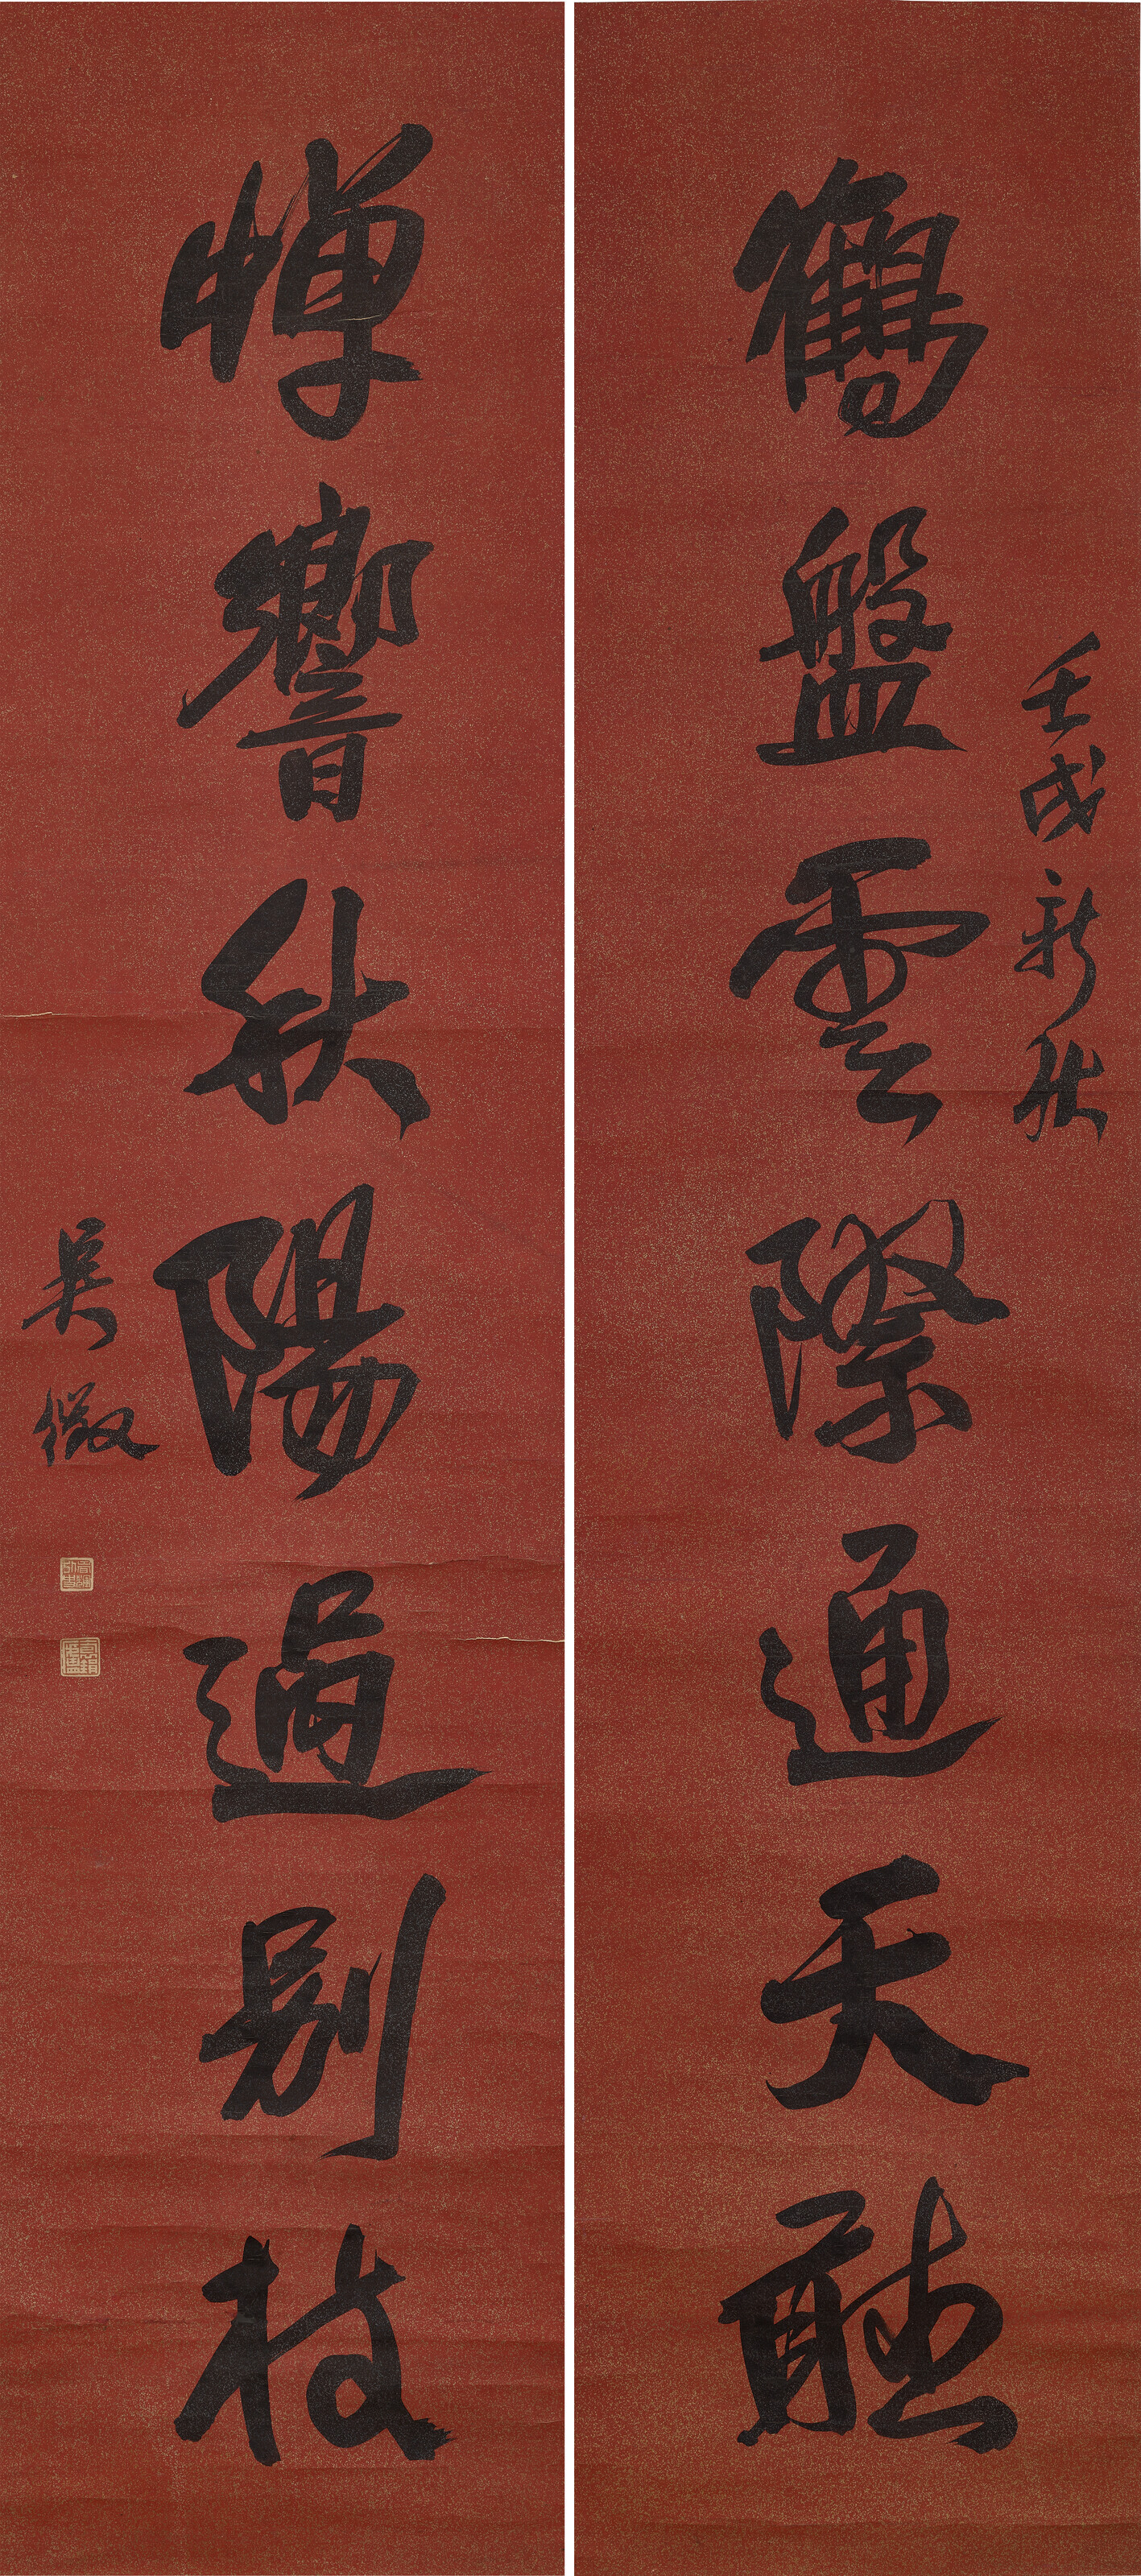 壬戌新秋
鶴盤雲際通天聽
蟬響秋陽過別枝
吳徵